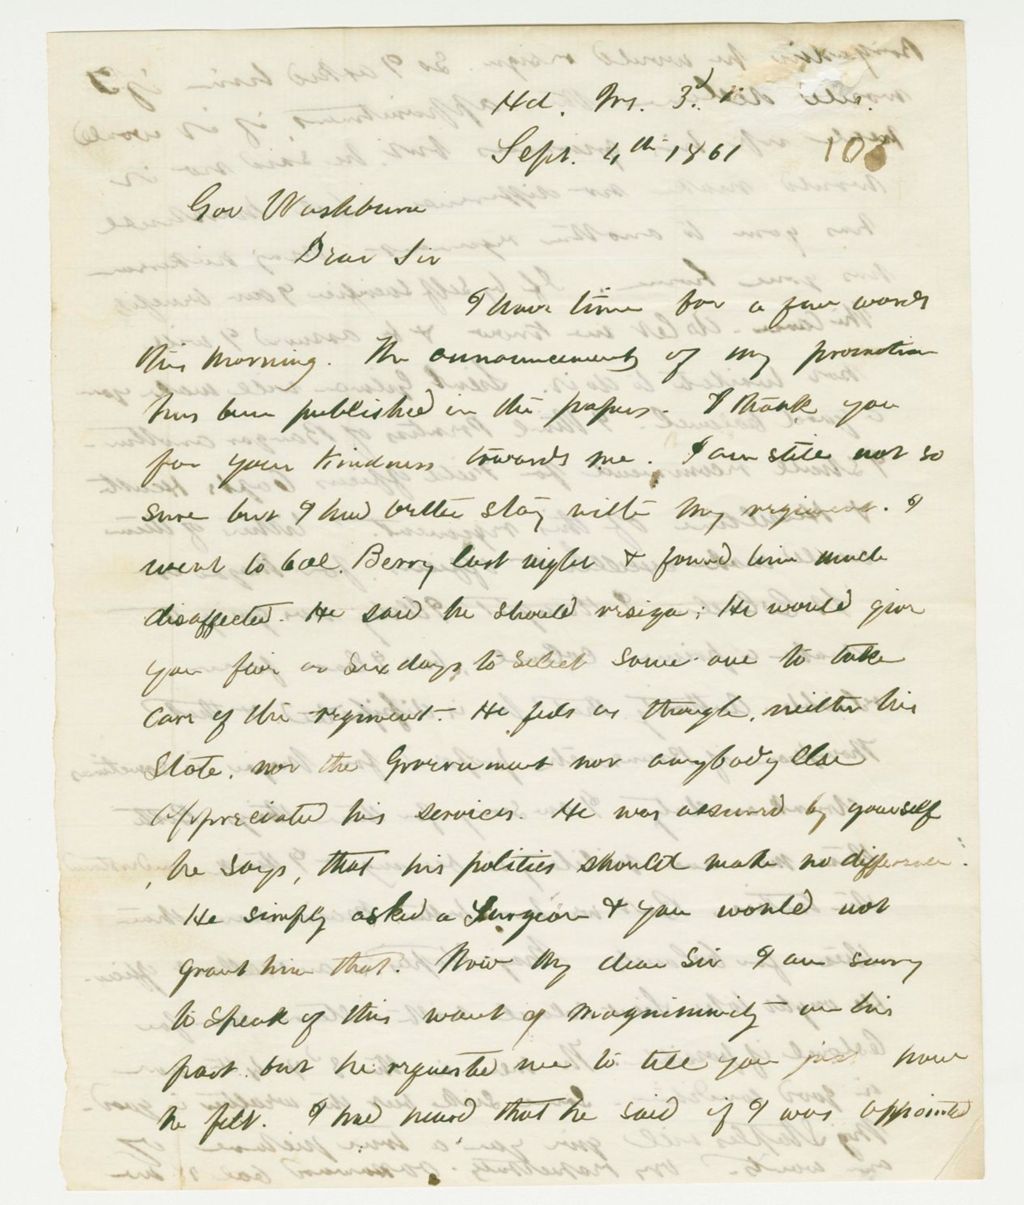 Hd. Qrs. 3d
Sept. 4th 1861 108
Gov Washburn
Dear Sir
I have time for a few words
this morning. The announcement of my promotion
has been published in the papers. I thank you
for your kindness towards me. I am still not so
sure but I had better stay with my regiment. I
went to Col. Berry last night & found him much
disaffected. He said he should resign; He would give
you five or six days to select some one to take
care of the regiment. He feels as though, neither his
State, nor the Government nor anybody else
Appreciated his services. He was assured by yourself
, he says, that his politics should make no difference.
He simply asked a Surgeon & you would not
grant him that. Now my dear Sir I am sorry
to speak of this want of magnimity on his
part but he requested me to tell you just how
he felt. I had heard that he said if I was appointed